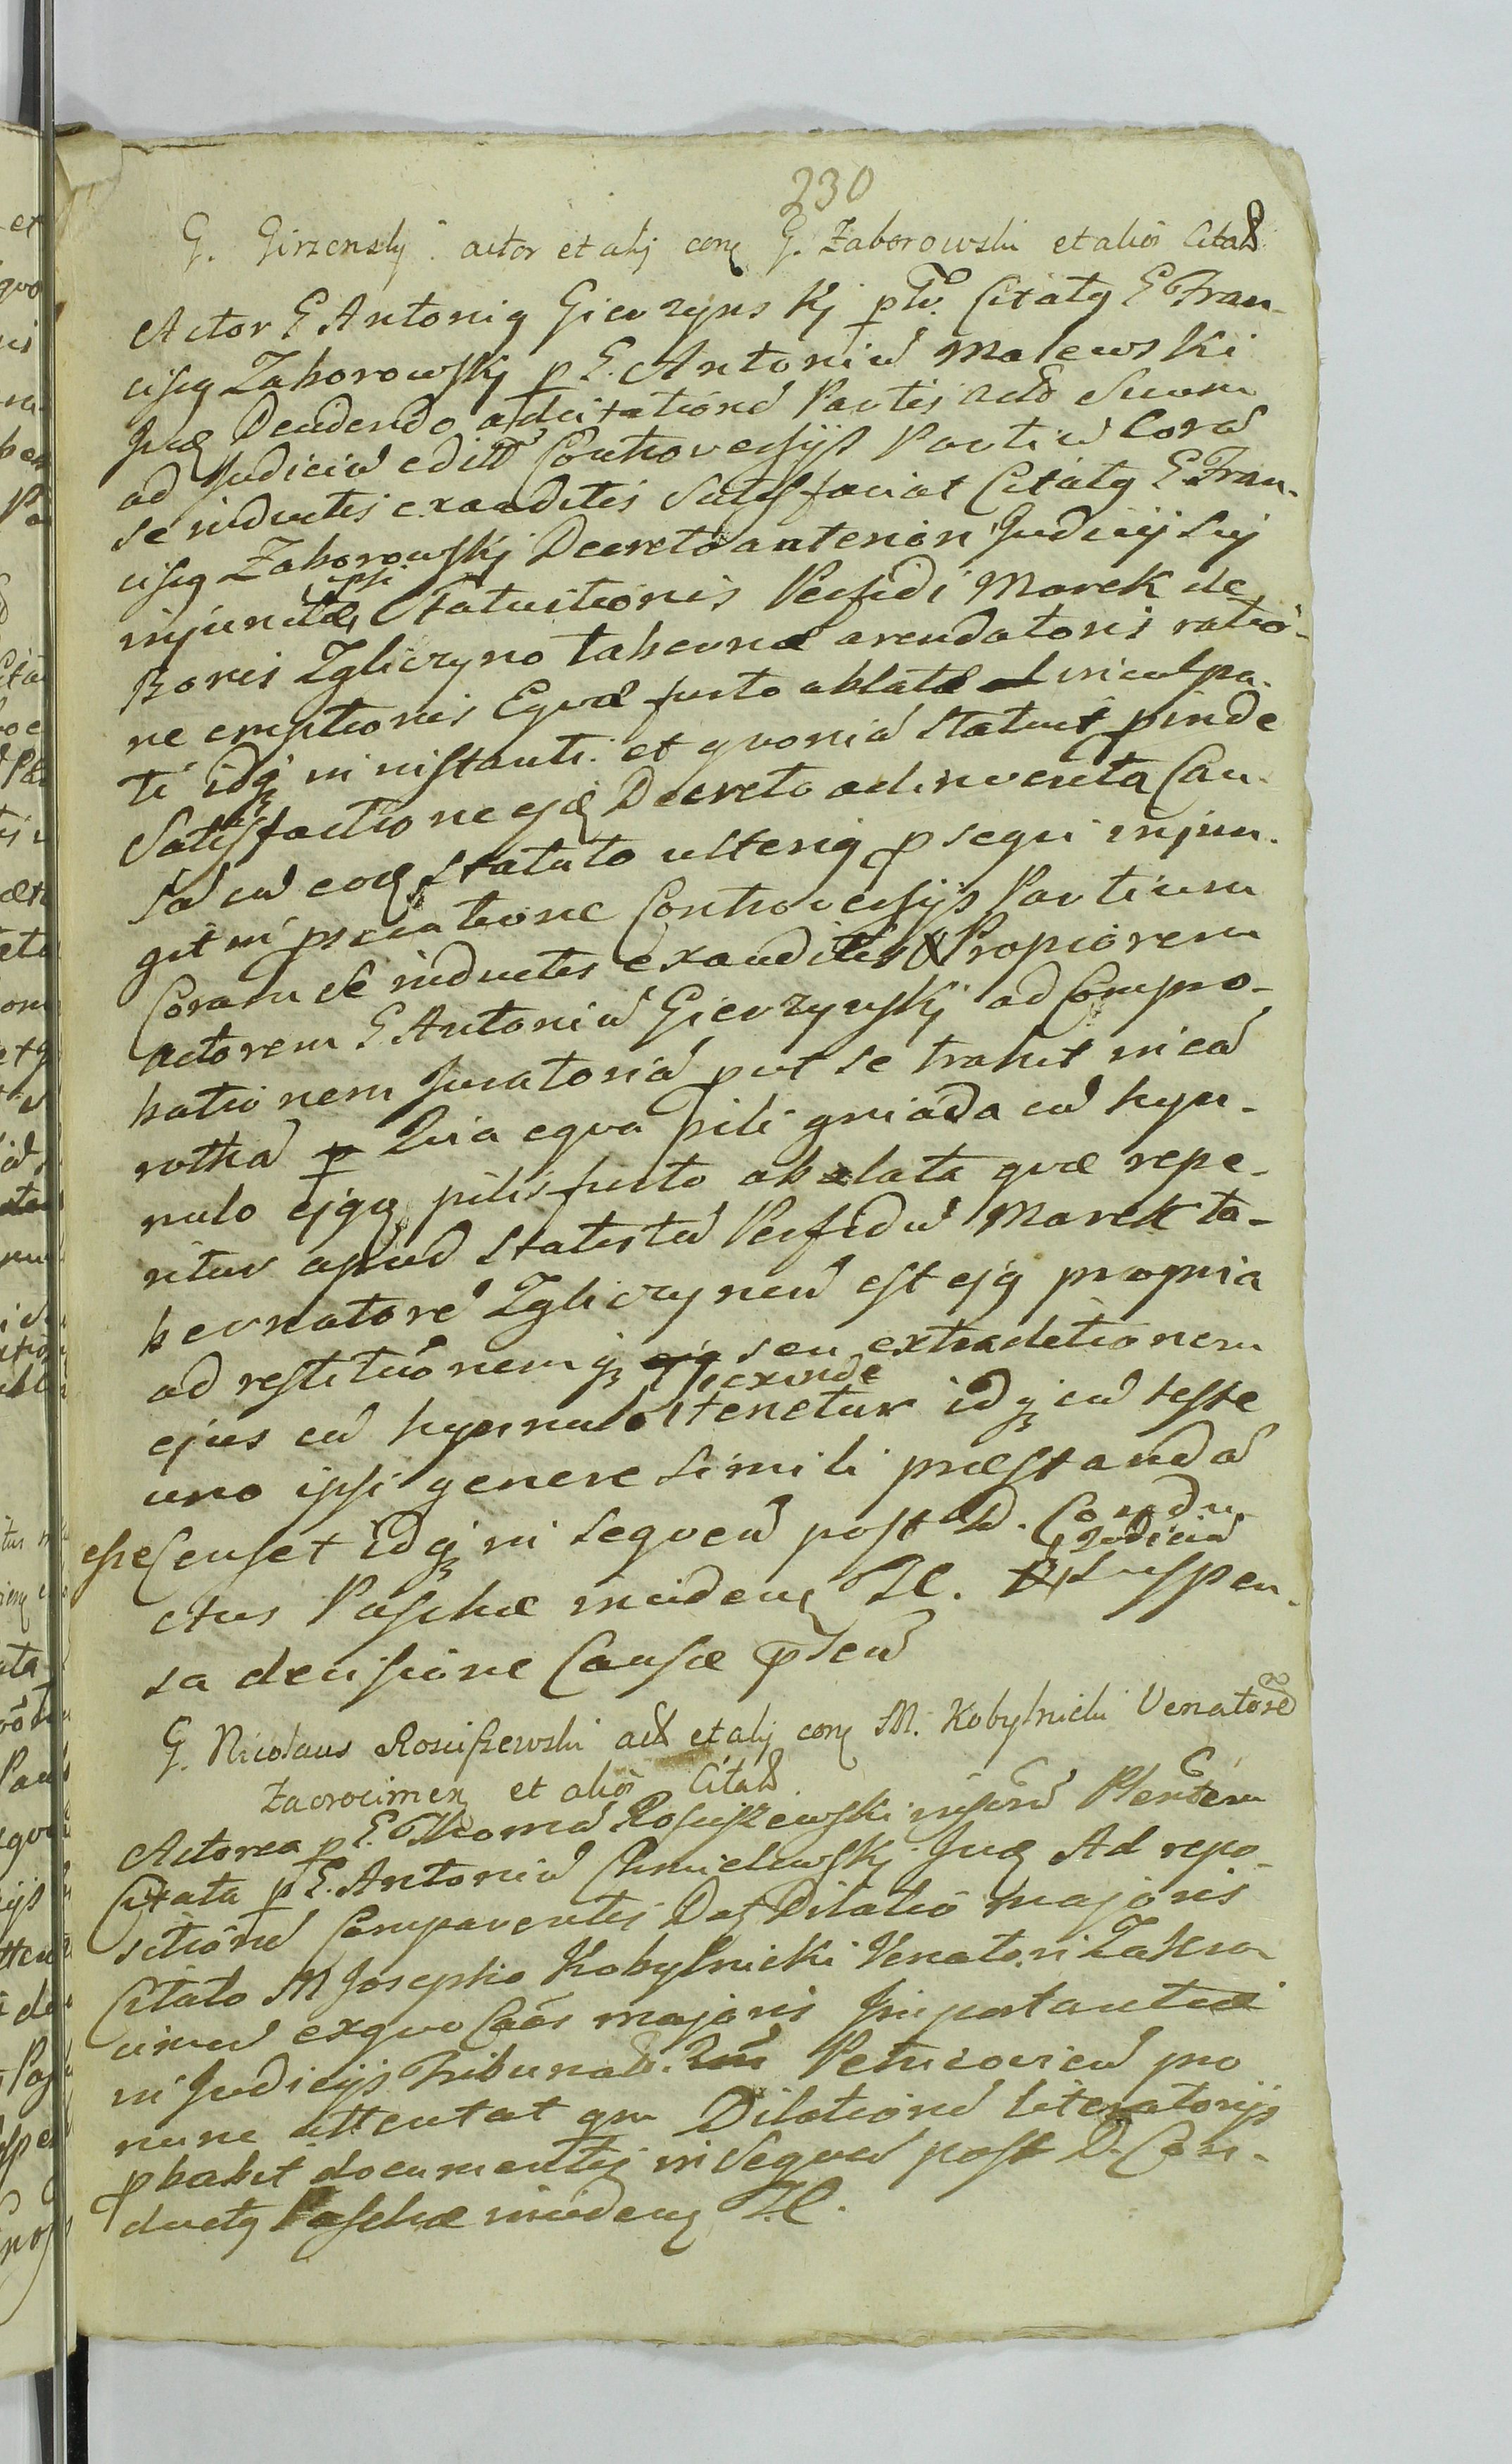 230
G. Girzenskj actor et alij con G. Zaborowski et alios Citatos
Actor G Antonig Gierzynskj pti. Citatg G Fran-
cisg Zaborowskj p G. Antoniu Malewski
Jud Decidendo adcitatione Partis act Suam
ad Judiciu edit Controversijs Partiu Cora
se inductis exauditis Satisfaciat Citatg G. Fran-
cisg Zaborowskj Decreto anteriori Judicij sui
injunctæ ipsi Statuitionis Perfidi Marek de
Bonis Zgliczyno tabernæ arendatoris ratio-
ne emptionis Equæ furto ablatæ inculpa-
ti idq in instanti. et quonia statuit pinde
Satisfactione ejq Decreto adinventa Cau-
sa cu eoq statuto ulterig psequi injun-
git in psecutione Controversijs Partium
Coram se inductis exauditis Propiorem
actorem G Antoniu Gierzynskj ad Compro-
bationem Juratoria put se trahit in ea
rotha Quia equa pili gniada cu hyn-
nulo ejgq pilis furto ablata quæ repe-
ritur apud statutu Perfidu Marek ta-
bernatore Zgliczynen est ejg propria
ad restituonemq seu extraditionem
ejus cu hynnulo exinde tenetur idq cu teste
uno ipsi genere simili præstanda
esse Censet idq in sequen post D. Condu-
ctus Paschæ inciden TC. Judiciu suspen-
sa decisione Causæ psen
G. Nicolaus Rosciszewski act et alij con M. Kobylnicki Venatore
Zacrocimen et alios Citatos
Actorea p G. Thoma Rosciszewski Plenten
Citata p G. Antoniu Chmielewskj Jud Ad repo-
sitione Comparentis Dat Dilatio majoris
Citato M Josepho Kobylnicki Venatori Zakro-
cimen exquo Caas majoris Importantiæ
in Judicijs Tribunal. Petricovien pro
nunc attentat qm Dilatione literatorijs
pbabit documentis in Sequen post D. Con-
ductg Paschæ inciden TC.